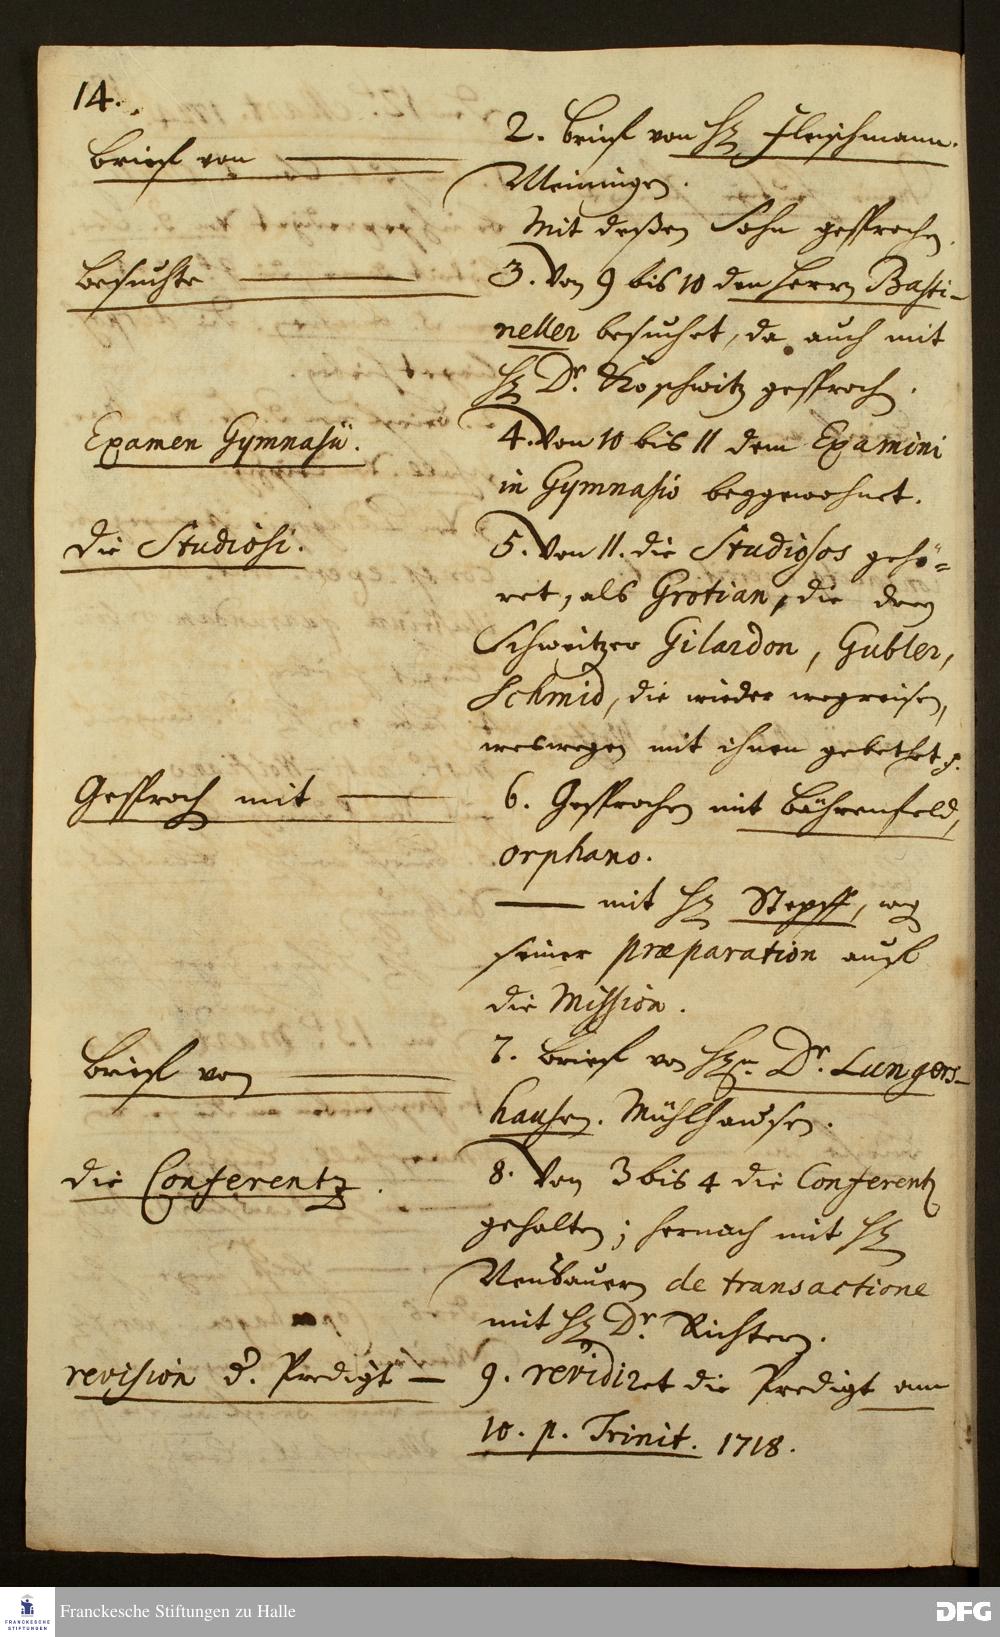 14.
Brieff von ———
2. Brieff von H Fleischmann.
Meiningen.
Mit deßen Sohn gesprochen.
Besuchte ———
3. Von 9 bis 10 den Herrn Basti-
neller besuchet, da auch mit
H Dr. Koschwitz gesproch.
Examen Gymnasii.
4. Von 10 bis 11 dem Examini
in Gymnasio beygewohnet.
Die Studiosi.
5. Von 11. die Studiosos gehö-
ret, als Grotian, die drey
Schweitzer Gilardon, Gubler,
Schmid, die wieder wegreisen,
weswegen mit ihnen gebethet
Gesproch mit ———
6. Gesprochen mit Bährenfeld,
orphano.
——— mit H Stepff, weg
seiner præparation auff
die Mission.
Brieff von ———
7. Brieff von Hn Dr. Lungers-
hausen. Mühlhausen.
die Conferentz.
8. Von 3 bis 4 die Conferentz
gehalten; hernach mit H
Neubauern de transactione
mit H Dr. Richtern.
revision d. Predigt —
9. revidiret die Predigt am
10. p. Trinit. 1718.
Franckesche Stiftungen zu Halle
DFG
FRANCKESCHE
STIFTUNGEN